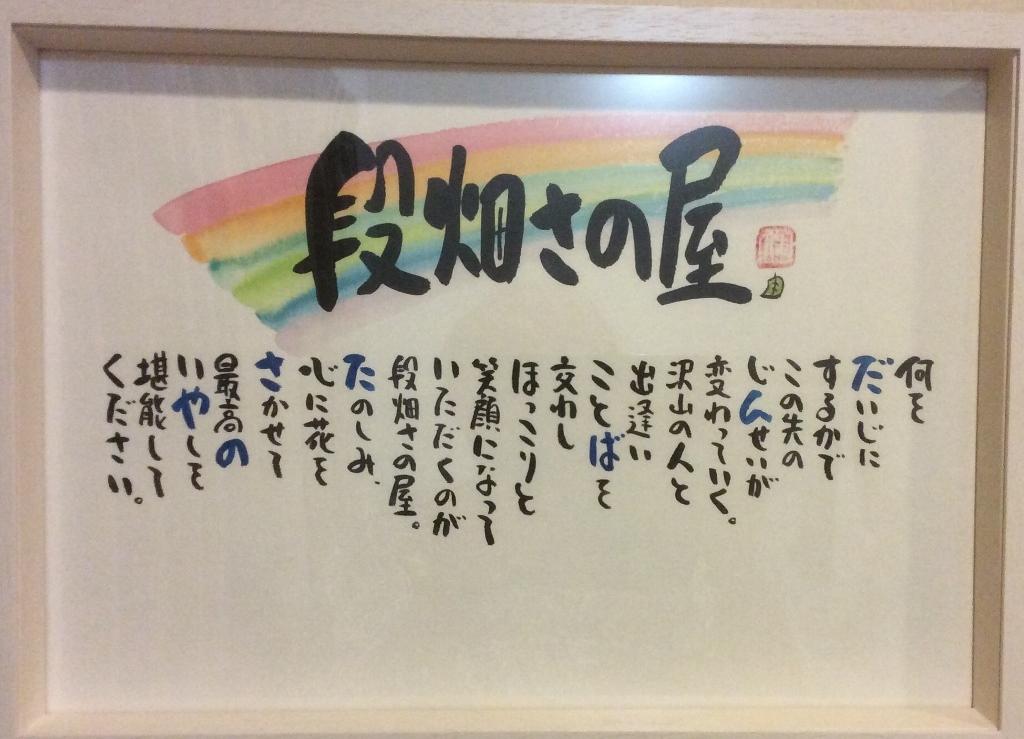 段畑さの屋
何を
だいじに
するかで
この先の
じんせいが
変わっていく。
沢山の人と
出逢い
ことばを
交わし
ほっこりと
笑顔になって
いただくのが
段畑さの屋。
たのしみ、
心に花を
さかせて
最高の
いやしを
堪能して
ください。